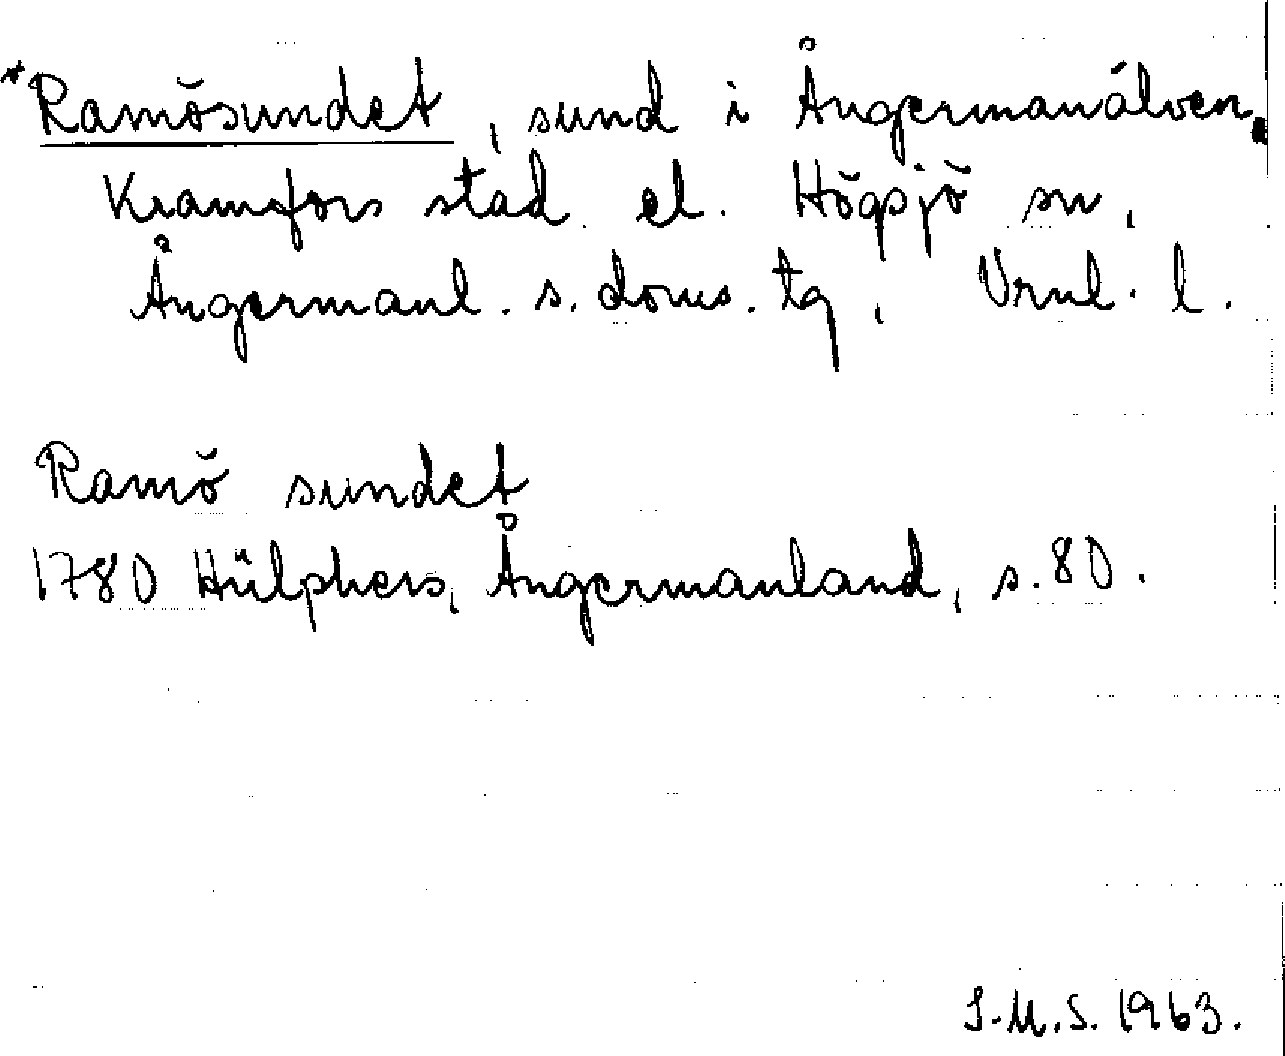 *Ramösundet, sund i Ångermanälven,
Kramfors stad el. Högsjö sn,
Ångermanl. s. doms. tg, Vrnl. l.
Ramö sundet
1780 Hülphers, Ångermanland, s. 80.
S.M.S. 1963.